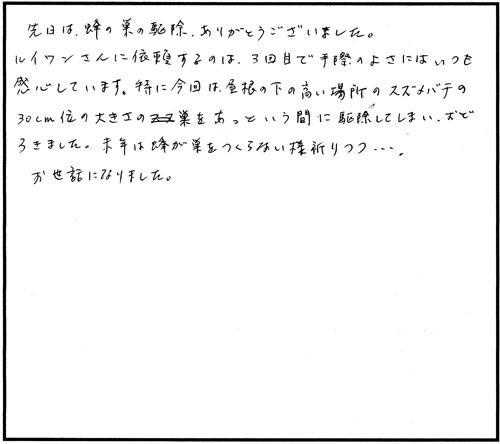 先日は、蜂の巣の駆除、ありがとうございました。
ルイワンさんに依頼するのは、3回目で手際のよさにはいつも
感心しています。特に今回は、屋根の下の高い場所のスズメバチの
30cm位の大きさの巣をあっという間に駆除してしまい、おど
ろきました。来年は蜂が巣をつくらない様祈りつつ…。
お世話になりました。